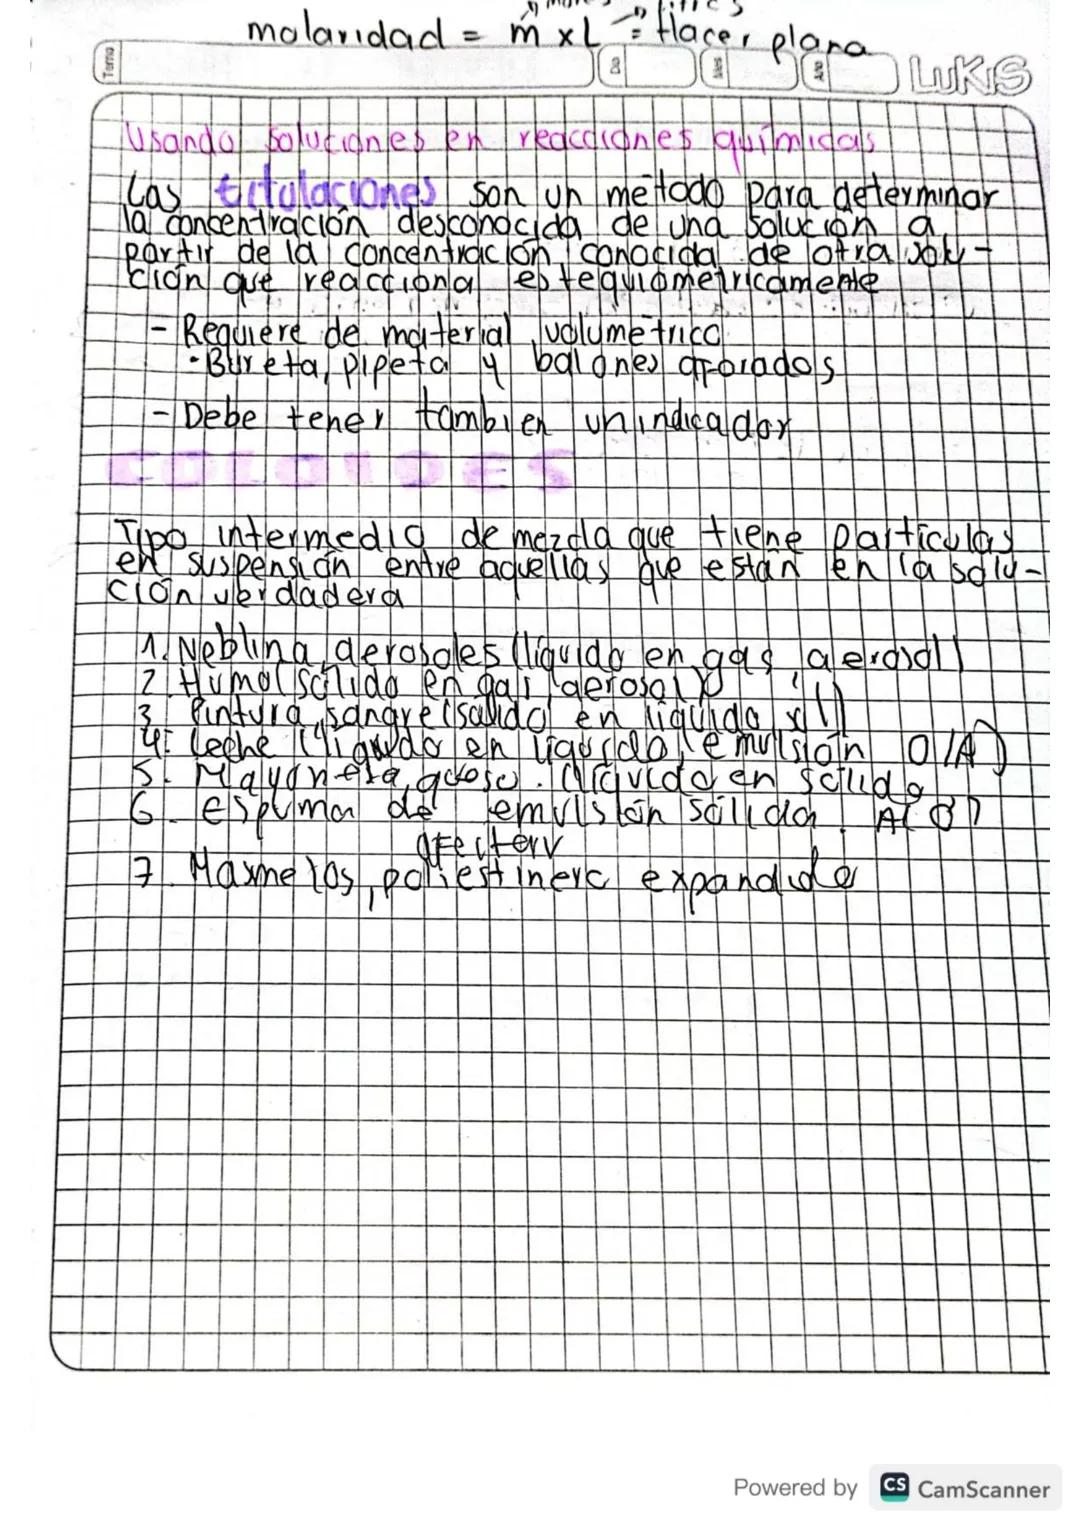 molaridad = m x L = Hacer plana
Tema
Día
Mes
Año
LUKIS
Usando soluciones en reacciones químicas
Las titulaciones son un metodo para determinar
la concentración desconocida de una solución a
partir de la concentración conocida de otra solu-
ción que reacciona estequiometricamente
- Requiere de material volumetrico
• Bureta, pipeta y balones aforados
- Debe tener tambien un indicador
COLOIDES
Tipo intermedio de mezcla que tiene particulas
en suspensión entre aquellas que están en la solu-
ción verdadera
1. Neblina, aerosoles (líquido en gas, aerosol)
2. Humo (sólido en gas, aerosol)
3. Pintura, sangre (solido en liquido,
4. Leche (liquido en liquido, emulsión O/A)
5. Mayonesa, queso. (liquido en solido
6. Espuma de emulsión sólida. A
7. Masmelos, expandido
Powered by CS CamScanner